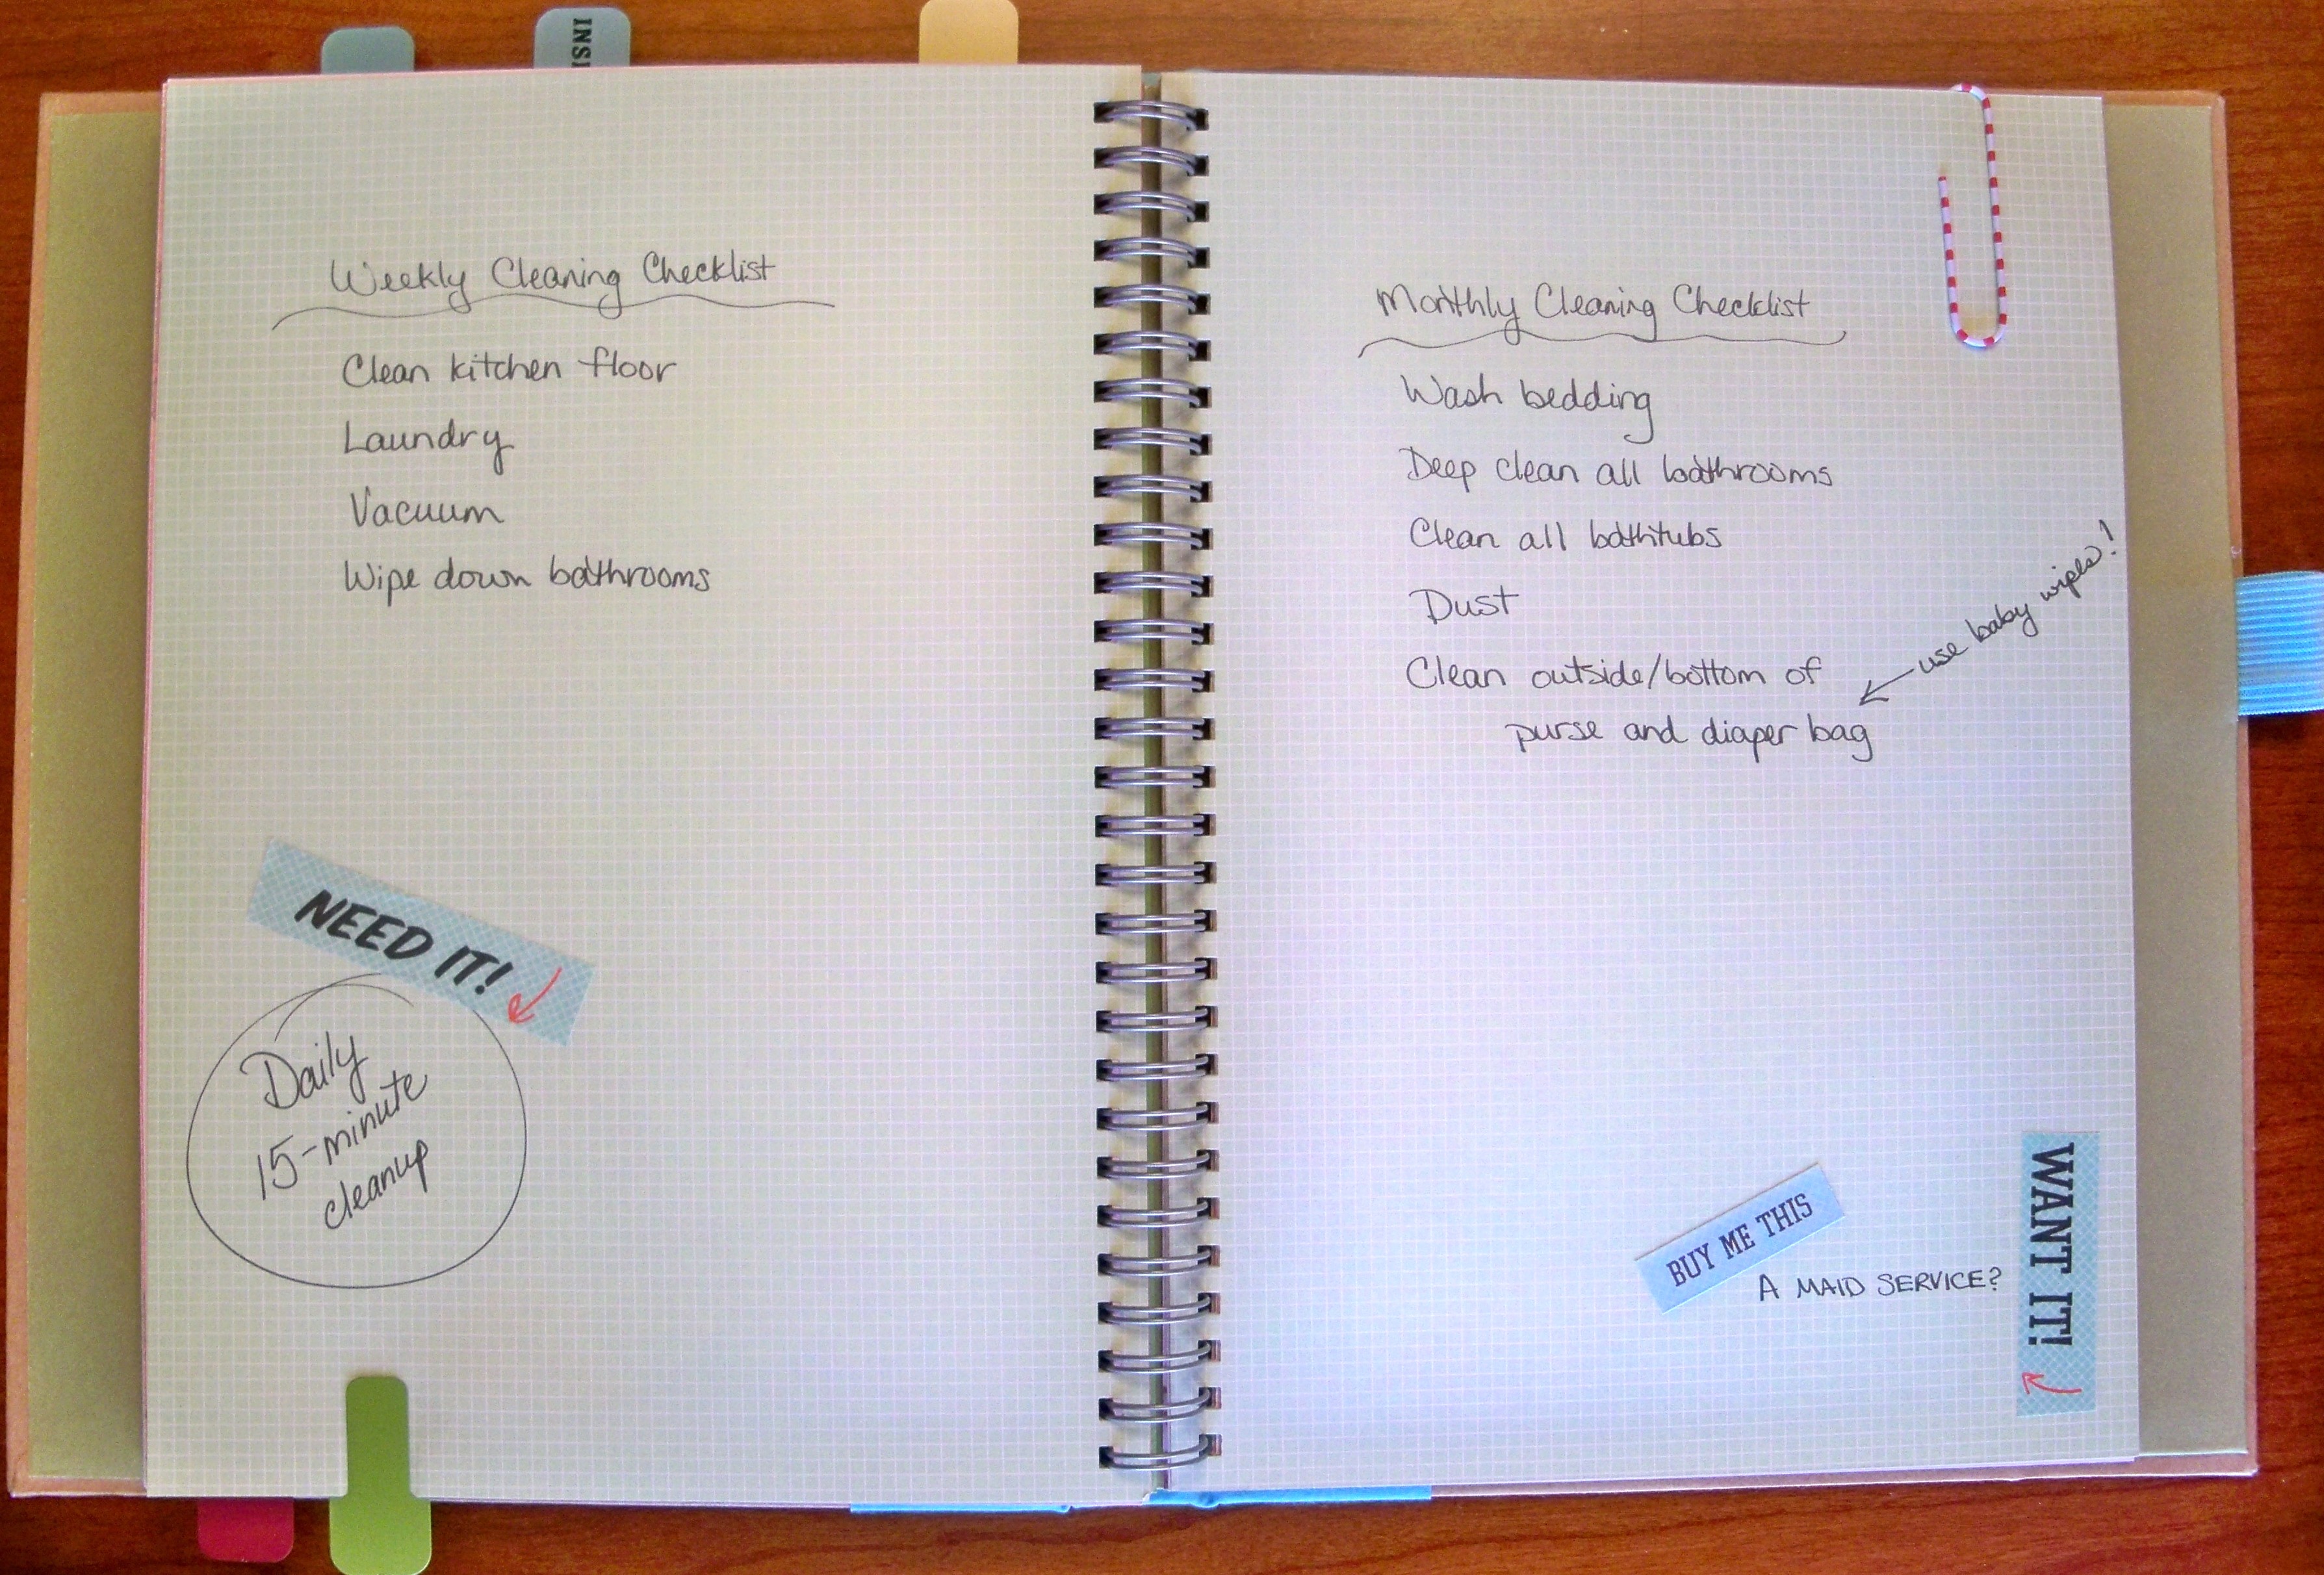 INSI
Weekly Cleaning Checklist
Clean kitchen floor
Laundry
Vacuum
Wipe down bathrooms
NEED IT!
Daily
15-minute
cleanup
Monthly Cleaning Checklist
Wash bedding
Deep clean all bathrooms
Clean all bathtubs
Dust
Clean outside/bottom of
purse and diaper bag
use baby wipes!
BUY ME THIS
A MAID SERVICE?
WANT IT!